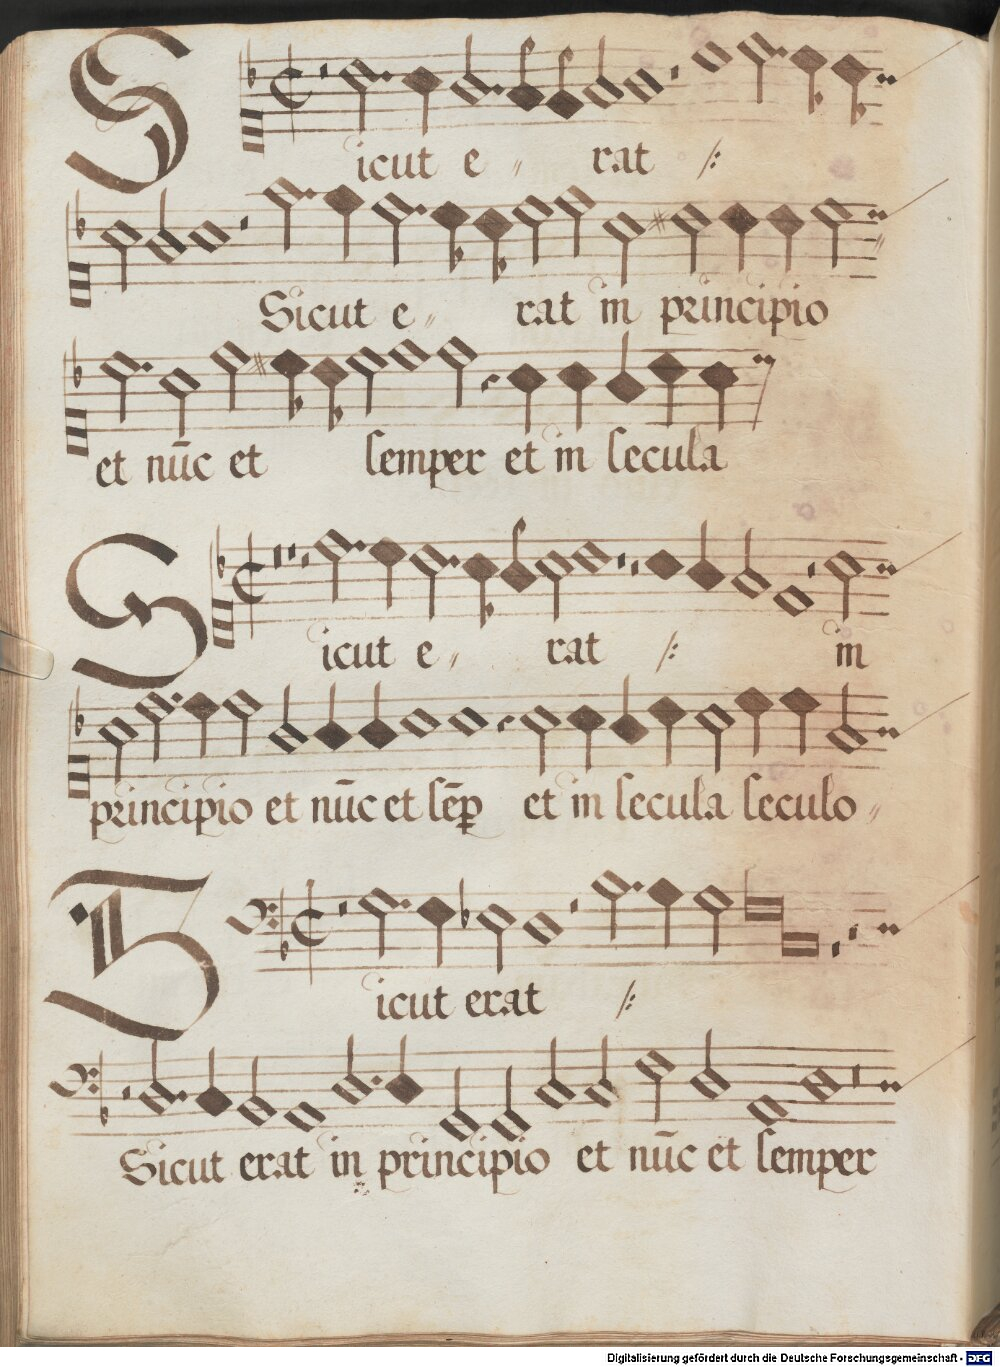 Sicut e〃 rat ⁒
Sicut e〃 rat in principio
et nūc et semper et in secula
Sicut e〃 rat ⁒ in
principio et nūc et sēꝑ et in secula seculo〃
Sicut erat ⁒
Sicut erat in principio et nūc et semper
Digitalisierung gefördert durch die Deutsche Forschungsgemeinschaft - DFG